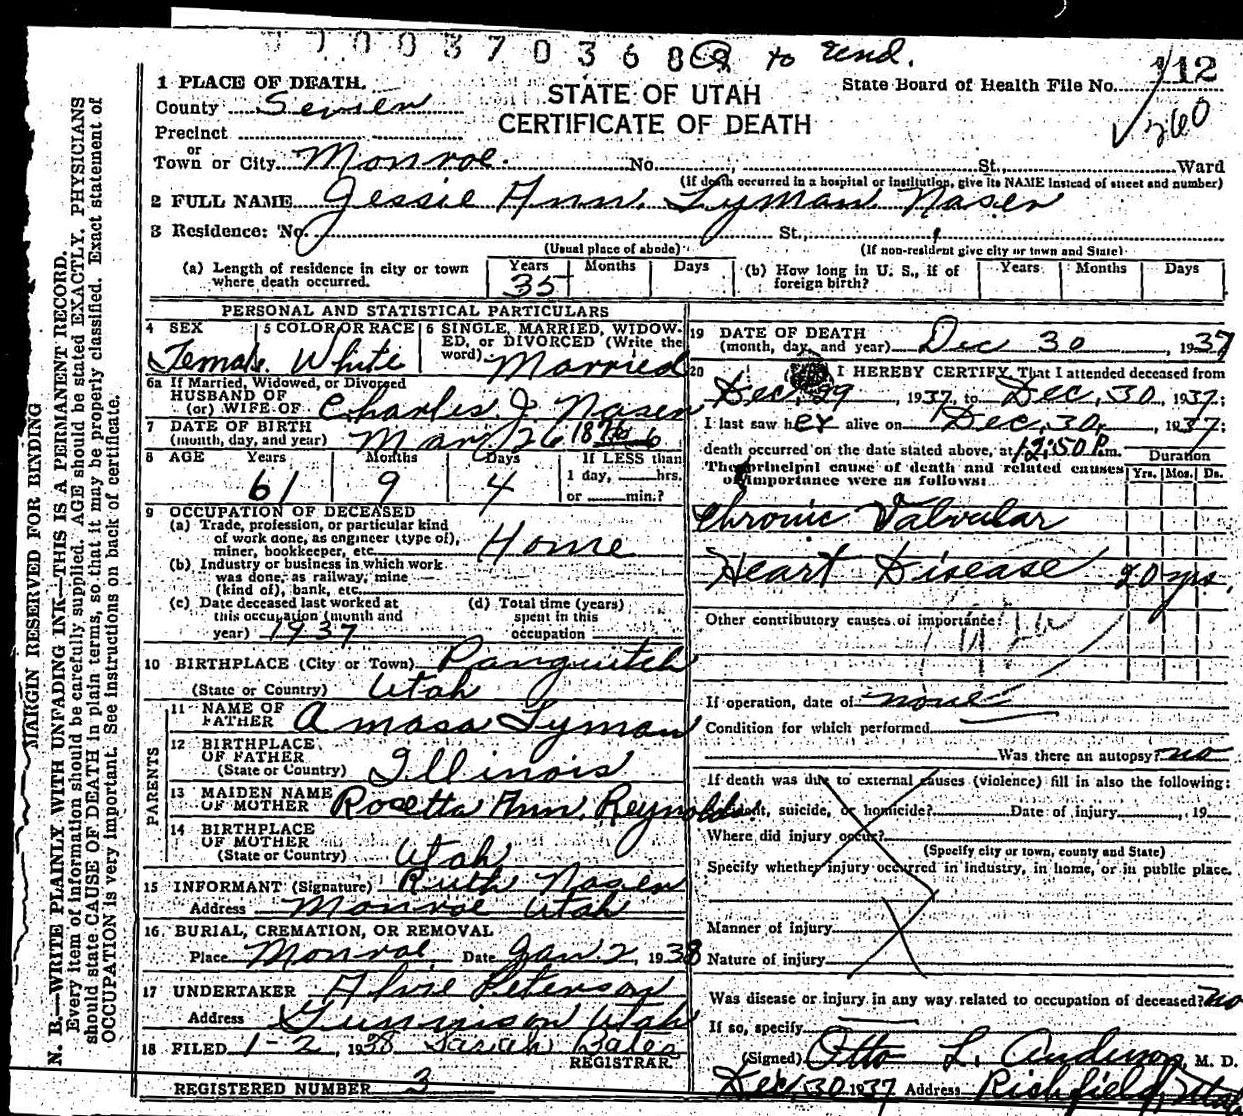 0003703688 to End.
1 PLACE OF DEATH.
STATE OF UTAH
CERTIFICATE OF DEATH
State Board of Health File No. 112
260
County Sevier
Precinct
or
Town or City Monroe. No. St., Ward
(If death occurred in a hospital or institution, give its NAME instead of street and number)
2 FULL NAME Jessie Ann Lyman Nasen
3 Residence: No. St.,
(Usual place of abode) (If non-resident give city or town and State)
(a) Length of residence in city or town where death occurred. Years 35 Months Days
(b) How long in U. S., if of foreign birth? Years Months Days
PERSONAL AND STATISTICAL PARTICULARS
4 SEX Female 5 COLOR OR RACE White 6 SINGLE, MARRIED, WIDOWED, or DIVORCED (Write the word) Married
6a If Married, Widowed, or Divorced
HUSBAND OF
(or) WIFE OF Charles J Nasen
7 DATE OF BIRTH
(month, day, and year) Mar 26 1876
8 AGE Years 61 Months 9 Days 4 If LESS than 1 day, hrs. or min.?
9 OCCUPATION OF DECEASED
(a) Trade, profession, or particular kind of work done, as engineer (type of), miner, bookkeeper, etc. Home
(b) Industry or business in which work was done, as railway, mine (kind of), bank, etc.
(c) Date deceased last worked at this occupation (month and year) 1937
(d) Total time (years) spent in this occupation
10 BIRTHPLACE (City or Town) Panguitch
(State or Country) Utah
PARENTS
11 NAME OF FATHER Amasa Lyman
12 BIRTHPLACE OF FATHER (State or Country) Illinois
13 MAIDEN NAME OF MOTHER Rosetta Ann Reynolds
14 BIRTHPLACE OF MOTHER (State or Country) Utah
15 INFORMANT (Signature) Ruth Nasen
Address Monroe Utah
16 BURIAL, CREMATION, OR REMOVAL
Place Monroe Date Jan. 2, 1938
17 UNDERTAKER Peterson
Address Gunnison Utah
18 FILED 1-2, 1938 Sariah Bates
REGISTRAR.
REGISTERED NUMBER 3
19 DATE OF DEATH
(month, day, and year) Dec 30, 1937
20 I HEREBY CERTIFY, That I attended deceased from
Dec. 29, 1937, to Dec. 30, 1937;
I last saw her alive on Dec. 30, 1937;
death occurred on the date stated above, at 12:50 P.m.
The principal cause of death and related causes of importance were as follows:
Duration
Yrs. Mos. Ds.
Chronic Valvular
Heart Disease 20 yrs.
Other contributory causes of importance:
If operation, date of none
Condition for which performed
Was there an autopsy? no
If death was due to external causes (violence) fill in also the following:
Accident, suicide, or homicide? Date of injury, 19
Where did injury occur?
(Specify city or town, county and State)
Specify whether injury occurred in industry, in home, or in public place.
Manner of injury
Nature of injury
Was disease or injury in any way related to occupation of deceased? no
If so, specify
(Signed) Otto L. Anderson, M. D.
Dec. 30 1937 Address Richfield, Utah
MARGIN RESERVED FOR BINDING
N. B.—WRITE PLAINLY WITH UNFADING INK—THIS IS A PERMANENT RECORD.
Every item of information should be carefully supplied. AGE should be stated EXACTLY. PHYSICIANS
should state CAUSE OF DEATH in plain terms, so that it may be properly classified. Exact statement of
OCCUPATION is very important. See instructions on back of certificate.